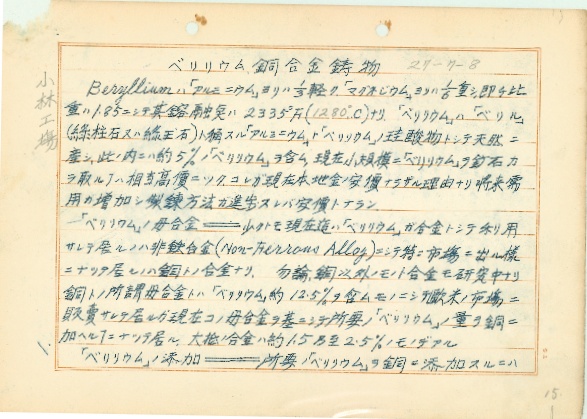 ベリリウム銅合金鋳物 27-7-8
小林工場
Berylliumハ「アルミニウム」ヨリハ⅓軽ク「マグネシウム」ヨリハ⅙重シ、即チ比
重ハ1.85ニシテ其鎔融点ハ2335°F(1280°C)ナリ、「ベリリウム」ハ「ベリル」
(緑柱石又ハ緑玉石)ト称スル「アルミニウム」ト「ベリリウム」ノ珪酸物トシテ天然ニ
産シ、此ノ内ニハ約5%ノ「ベリリウム」ヲ含ム、現在小規模ニ「ベリリウム」ヲ鉱石カ
ラ取ルヿハ相当高價ニツク、コレガ現在本地金ノ安價ナラザル理由ナリ将来需
用ガ増加シ製錬方法ガ進歩スレバ安價トナラン
「ベリリウム」ノ母合金══少クトモ現在迄ハ「ベリリウム」ガ合金トシテ利用
サレテ居ルノハ非鉄合金(Non-Ferrous Alloy)ニシテ特ニ市場ニ出ル様
ニナツテ居ルノハ銅トノ合金ナリ、 勿論銅以外ノモノトノ合金モ研究中ナリ
銅トノ所謂母合金トハ「ベリリウム」約12.5%ヲ含ムモノニシテ歐米ノ市場ニ
販賣サレテ居ルガ現在コノ母合金ヲ基ニシテ所要ノ「ベリリウム」ノ量ヲ銅ニ
加ヘルヿニナツテ居ル、大抵ノ合金ハ約1.5乃至2.5%ノモノデアル
「ベリリウム」ノ添加══所要ノ「ベリリウム」ヲ銅ニ添加スルニハ
15.
1